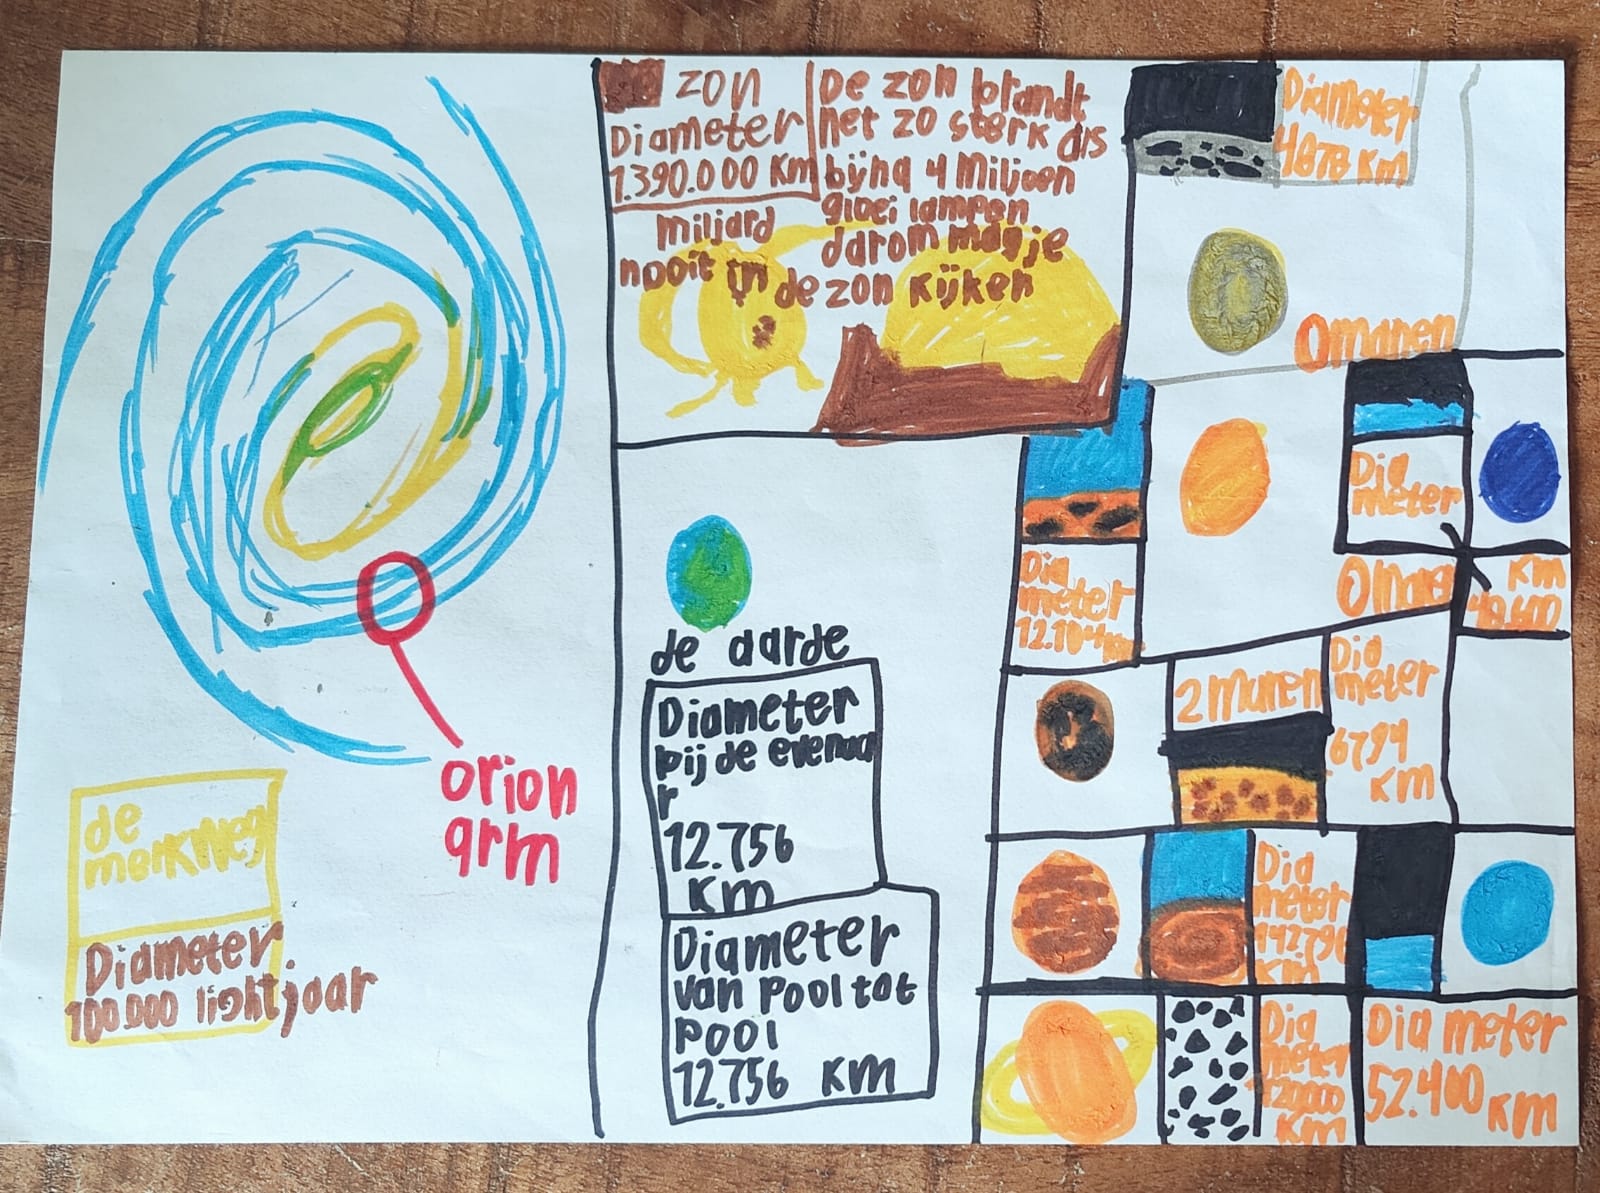 de
merkweg
Diameter
100.000 lightjaar
orion
arm
zon
Diameter
1.390.000 km
De zon brandt
net zo sterk als
bijna 4 Miljoen
miljard gloei lampen
darom mag je
nooit in de zon kijken
de aarde
Diameter
bij de evenaa
r
12.756
km
Diameter
van pool tot
pool
12.756 km
Diameter
4878 km
0 manen
Dia
meter
12.104 km
Dia
meter
0 manen
km
49.600
2 manen
Dia
meter
6794
km
Dia
meter
142.796
km
Dia
meter
120.000
km
Dia meter
52.400 km